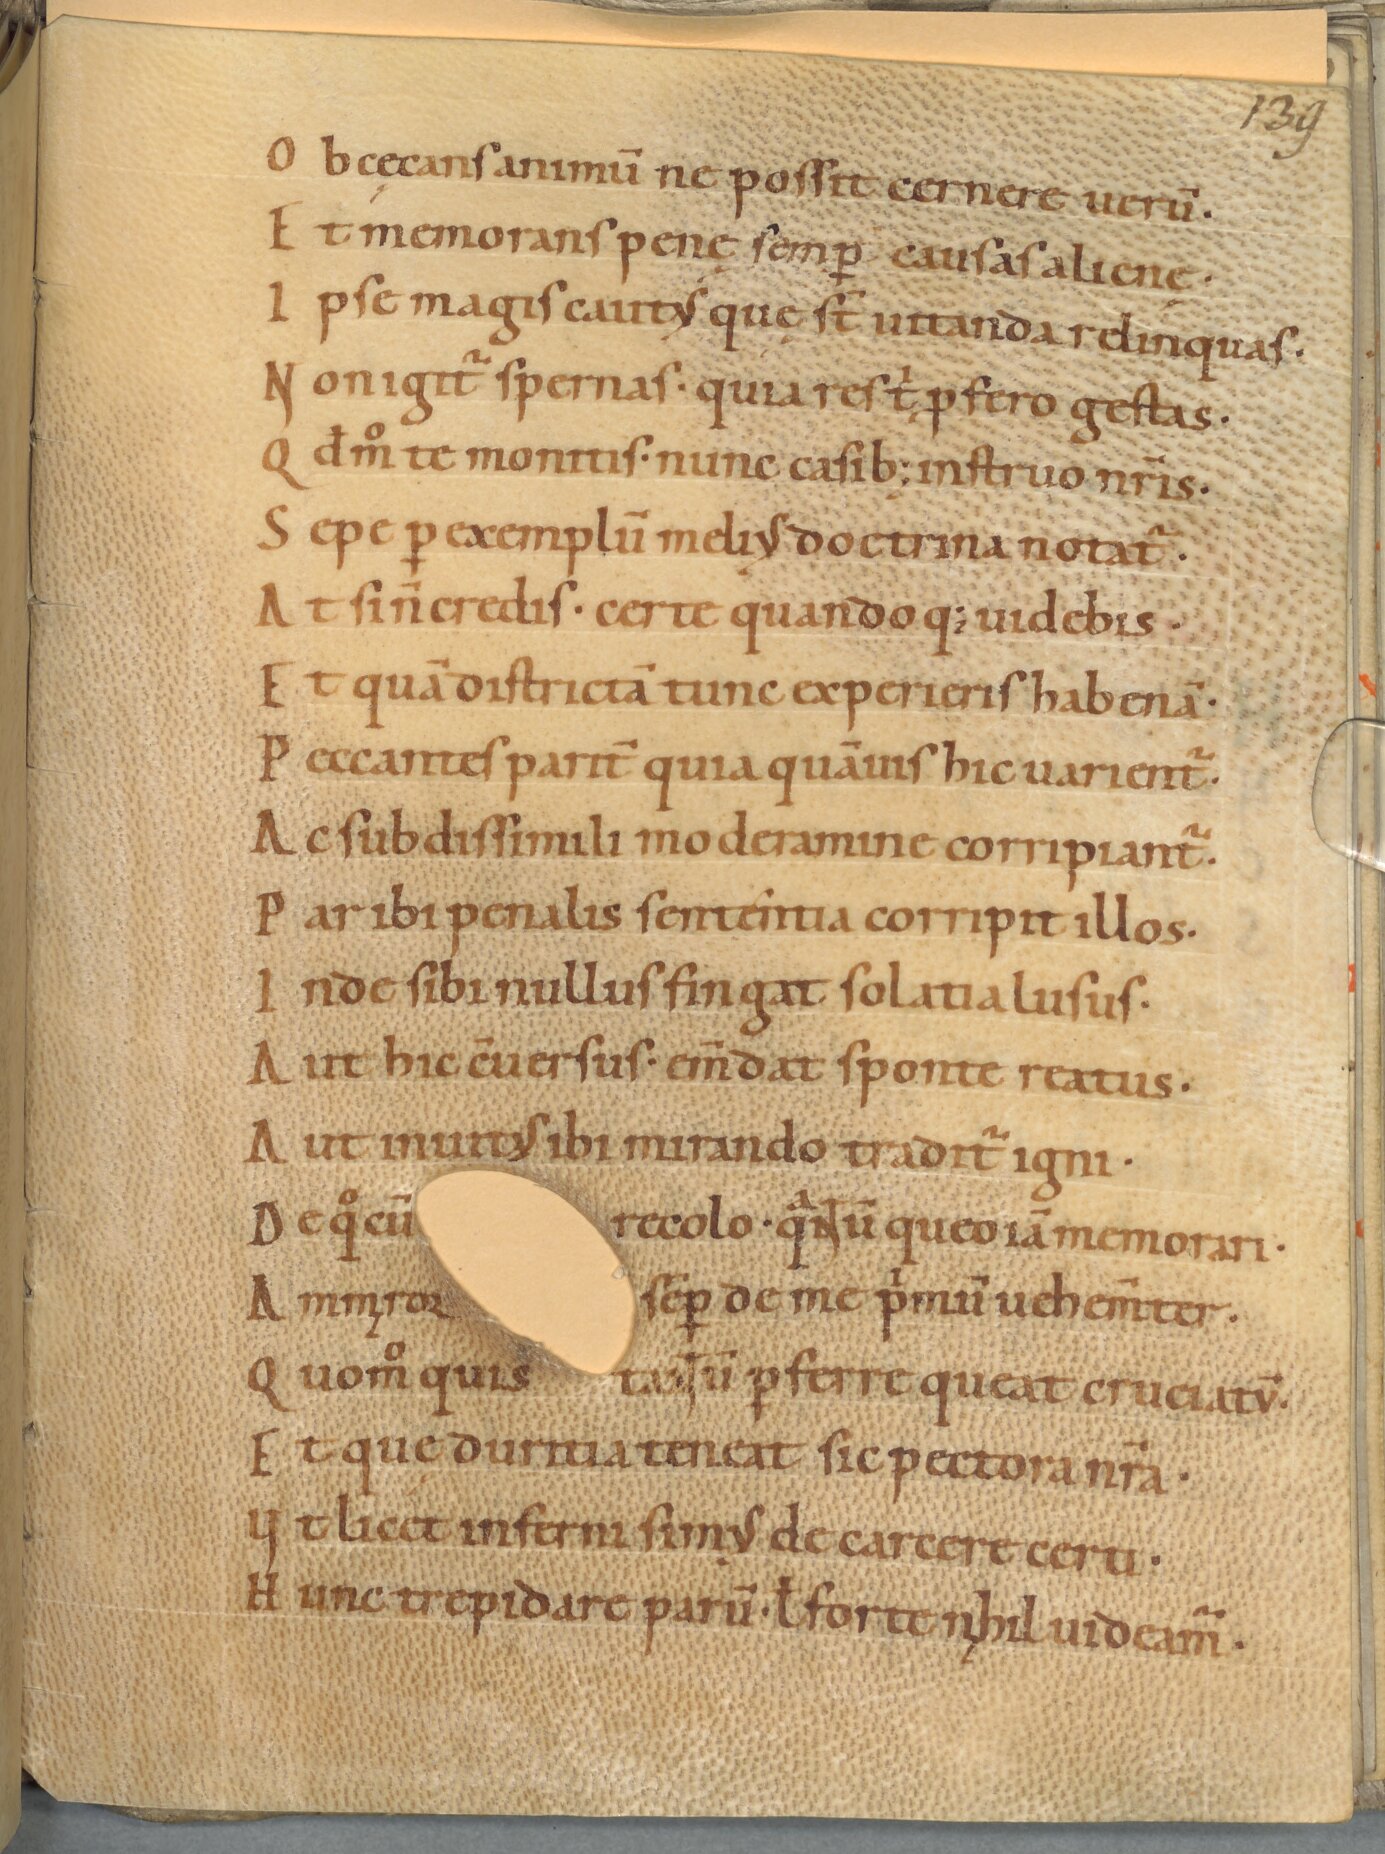 139
O bcęcans animū ne possit cernere uerū·
E t memorans penę semp̲ causas alienę·
I pse magis cautꝰ quę st̄ uitanda relinquas·
N on igit᷑ spernas· quia res t̍ p̲fero gestas·
Q đm̊ te monitis· nunc casib; instruo nr̄is·
S epe p̲ exemplū meliꝰ doctrina notat᷑·
A t si n̄ credis· certe quandoq; uidebis·
E t quā districtā tunc experieris habenā·
P eccantes parit̄ quia quāuis hic uarient᷑·
A c sub dissimili moderamine corripiant᷑·
P ar ibi penalis sententia corripit illos·
I nde sibi nullus fingat solatia lusus·
A ut hic c̄uersus· em̄dat sponte reatus·
A ut inuitꝰ ibi mirando tradit᷑ igni·
D e q̊ cū recolo· queo iā memorari·
A mmiror sēp̲ de me p̍mū uehem̄ter·
Q uom̊ quis p̲ferre queat cruciatū·
E t que duritia teneat sic pectora nr̄a·
U t licet inferni simꝰ de carcere certi·
H unc trepidare parū· ł forte nihil uideam᷑·